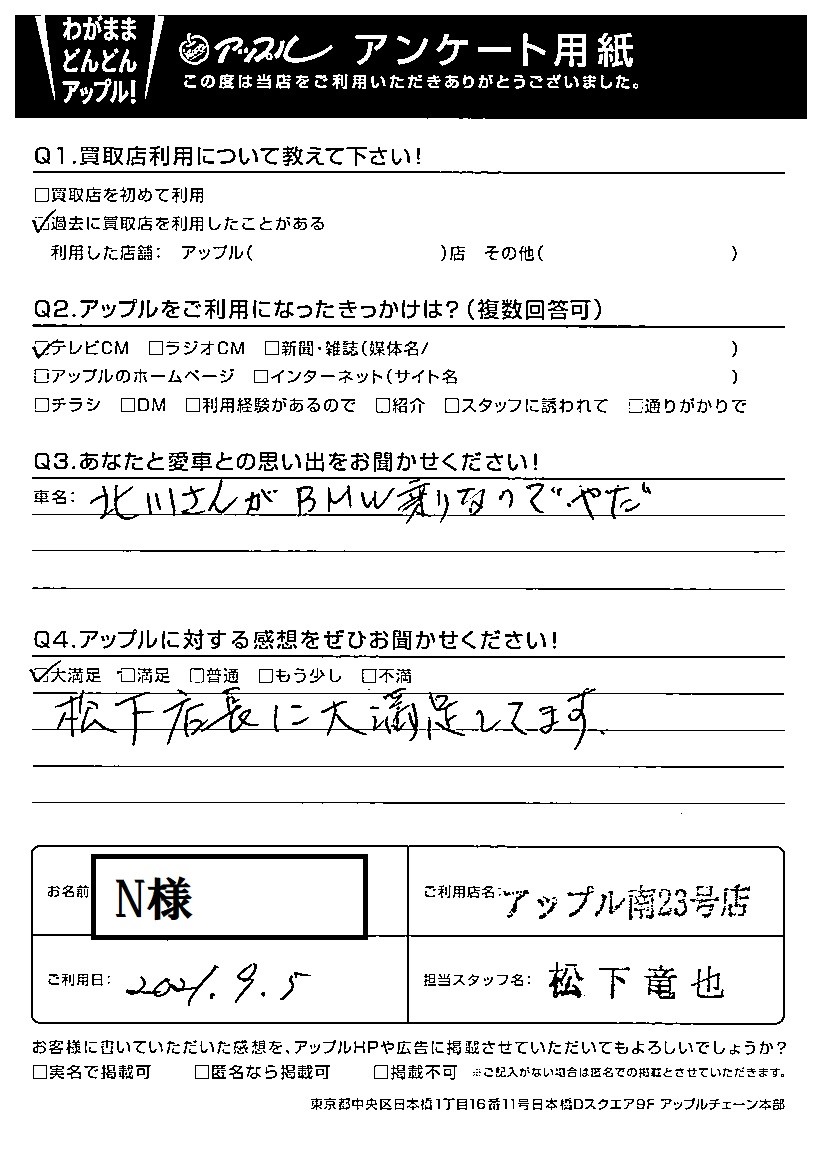 わがまま
どんどん
アップル!
アップル アンケート用紙
この度は当店をご利用いただきありがとうございました。
Q1.買取店利用について教えて下さい!
□買取店を初めて利用
☑過去に買取店を利用したことがある
利用した店舗: アップル( )店 その他( )
Q2.アップルをご利用になったきっかけは?(複数回答可)
☑テレビCM □ラジオCM □新聞・雑誌(媒体名/ )
□アップルのホームページ □インターネット(サイト名 )
□チラシ □DM □利用経験があるので □紹介 □スタッフに誘われて □通りがかりで
Q3.あなたと愛車との思い出をお聞かせください!
車名: 北川さんがBMW乗りなのでやだ
Q4.アップルに対する感想をぜひお聞かせください!
☑大満足 □満足 □普通 □もう少し □不満
松下店長に大満足してます。
お名前 N様
ご利用店名: アップル南23号店
ご利用日: 2021.9.5
担当スタッフ名: 松下竜也
お客様に書いていただいた感想を、アップルHPや広告に掲載させていただいてもよろしいでしょうか?
□実名で掲載可 □匿名なら掲載可 □掲載不可 ※ご記入がない場合は匿名での掲載とさせていただきます。
東京都中央区日本橋1丁目16番11号日本橋Dスクエア9F アップルチェーン本部